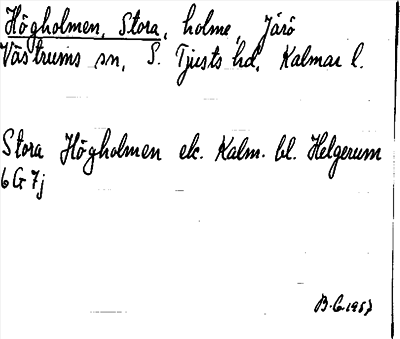 Högholmen, Stora, holme, Järö
Västrums sn, S. Tjusts hd, Kalmar l.
Stora Högholmen ek. Kalm. bl. Helgerum
6 G 7j
B.G. 1957